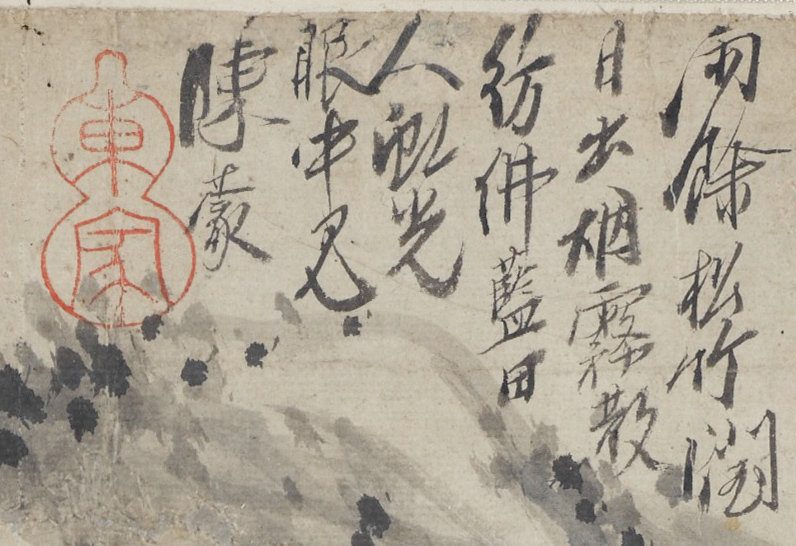 雨餘松竹潤
日出烟霧散
彷彿藍田
人虹光
眼中見
陳叢
東家